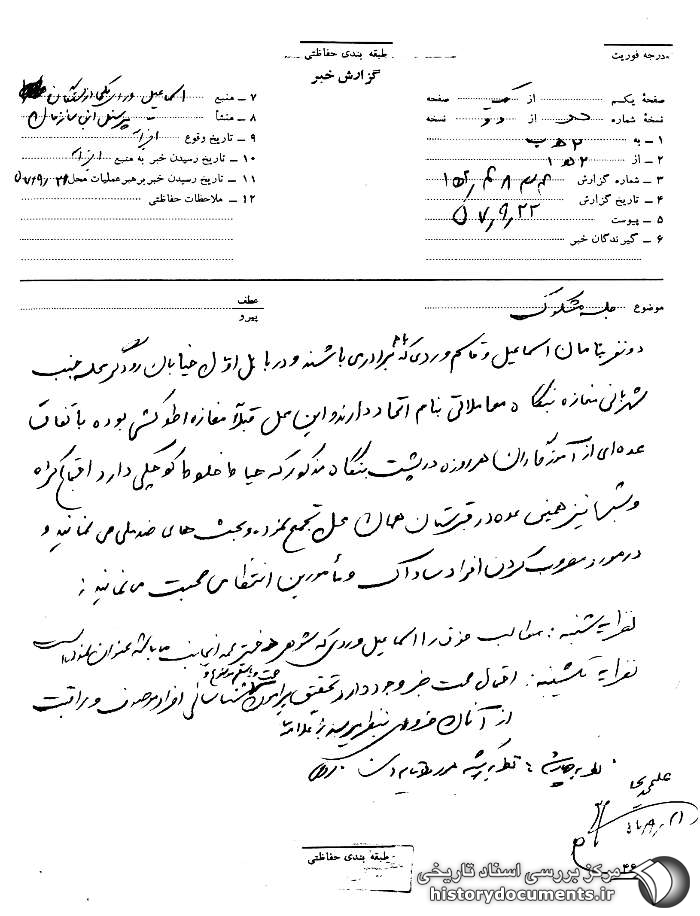 درجه فوریت
طبقه بندی حفاظتی
گزارش خبر
صفحهٔ یکم از صفحه
نسخهٔ شماره از نسخه
۱ ـ به ۲ ه‍ ب
۲ ـ از ۲ ه‍ ۱
۳ ـ شماره گزارش
۴ ـ تاریخ گزارش ۵۷٫۹٫۲۲
۵ ـ پیوست
۶ ـ گیرندگان خبر
۷ ـ منبع اسماعیل وردی یکی از
۸ ـ منشأ پرسنل این سازمان
۹ ـ تاریخ وقوع
۱۰ ـ تاریخ رسیدن خبر به منبع
۱۱ ـ تاریخ رسیدن خبر برهبر عملیات محل ۵۷٫۹٫۲۱
۱۲ ـ ملاحظات حفاظتی
موضوع جلسه مشکوک
عطف
پیرو
دو نفر بنامان اسماعیل و قاسم وردی که باهم برادر می باشند و در بابل اول خیابان رودگر محله جنب
شهربانی مغازه بنگاه معاملاتی بنام اتحاد دارند و این محل قبلاً مغازه اطوکشی بوده باتفاق
عده ای از آموزگاران هر روزه در پشت بنگاه مذکور که حیاط خلوط کوچکی دارد اجتماع کرده
و شبها نیز همین عده در قبرستان همان محل تجمع نموده و بحث های ضد ملی می نمایند و
در مورد مضروب کردن افراد ساواک و مأمورین انتظامی صحبت می نمایند .
نظریه شنبه : مطالب فوق را اسماعیل وردی که شوهر دختر عمه اینجانب میباشد عنوان نموده است
نظریه یکشنبه : احتمال صحت خبر وجود دارد تحقیق پیرامون صحت و یا سقم موضوع و شناسائی افراد موصوف و مراقبت
از آنان ضروری بنظر میرسد
نظریه چهارشنبه : نظریه یکشنبه مورد تایید است .
طبقه بندی حفاظتی
۴۶
مرکز بررسی اسناد تاریخی
historydocuments.ir